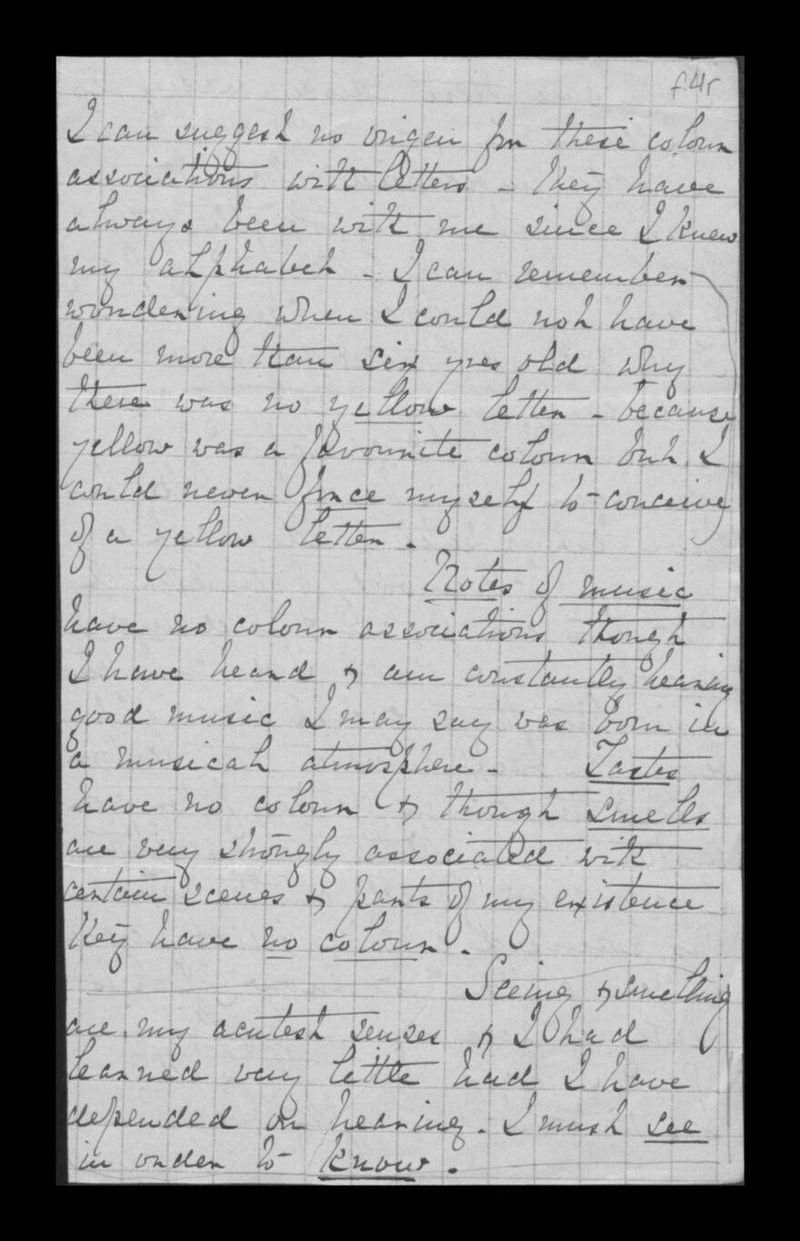 f4r
I can suggest no origin for these colour
associations with letters - they have
always been with me since I knew
my alphabet - I can remember
wondering when I could not have
been more than six yrs old why
there was no yellow letter - because
yellow was a favourite colour but I
could never force myself to conceive
of a yellow letter.
Notes of music
have no colour associations though
I have heard & am constantly hearing
good music I may say was born in
a musical atmosphere - Tastes
have no colour & though smells
are very strongly associated with
certain scenes & parts of my existence
they have no colour.
Seeing & smelling
are my acutest senses & I had
learned very little had I have
depended on hearing. I must see
in order to know.